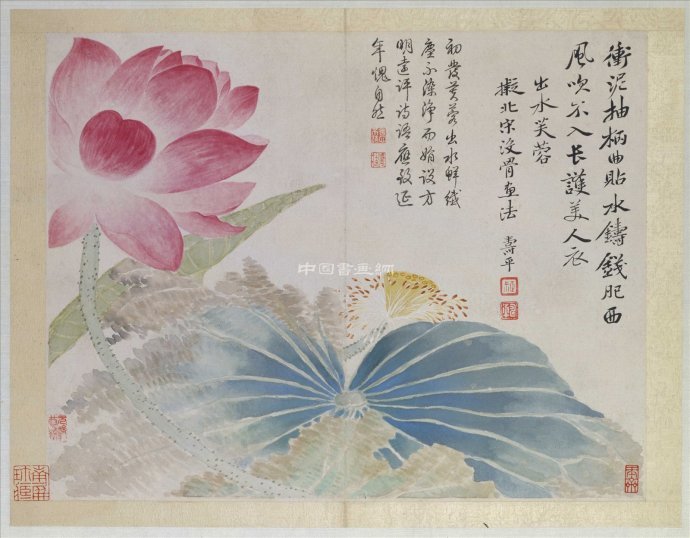 衝泥抽柄曲貼水鑄錢肥西
風吹不入长護美人衣
出水芙蓉
擬北宋没骨画法 壽平
初發芙蓉出水鮮纖
塵不染淨而娟設方
明遠評詩語應教延
年愧自然
中国書画網